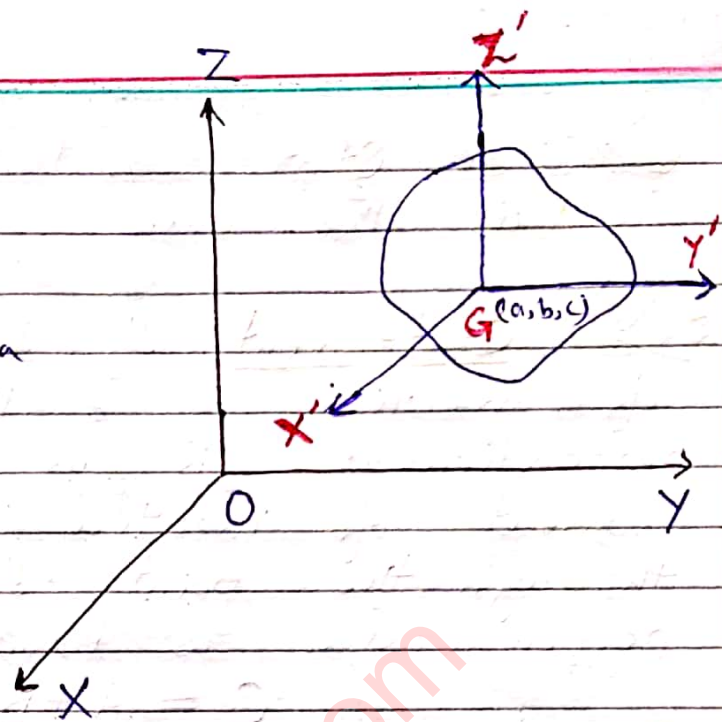 Z Z'
Y'
G (a, b, c)
X'
O
Y
X
om